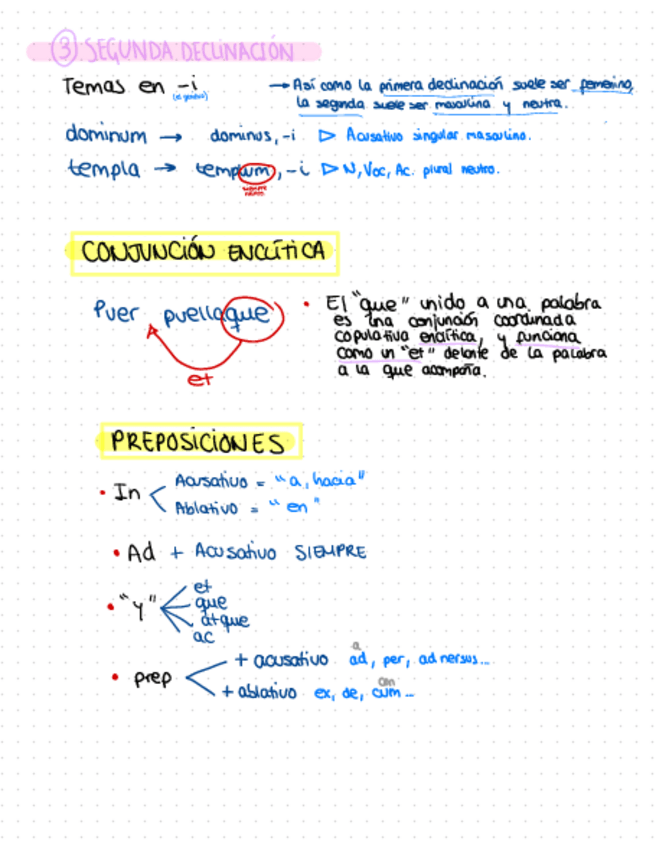 ③ SEGUNDA DECLINACIÓN
Temas en -i → Así como la primera declinación suele ser femenino,
(el genitivo) la segunda suele ser masculina y neutra.
dominum → dominus, -i ▷ Acusativo singular masculino.
templa → templum, -i ▷ N, Voc, Ac. plural neutro.
SIEMPRE
CONJUNCIÓN ENCLÍTICA
Puer puellaque
et
• El "que" unido a una palabra
es una conjunción coordinada
copulativa enclítica, y funciona
como un "et" delante de la palabra
a la que acompaña.
PREPOSICIONES
• In
Acusativo = "a, hacia"
Ablativo = "en"
• Ad + Acusativo SIEMPRE
• "y"
et
que
atque
ac
• prep
+ acusativo ad, per, adversus...
a
+ ablativo ex, de, cum...
con